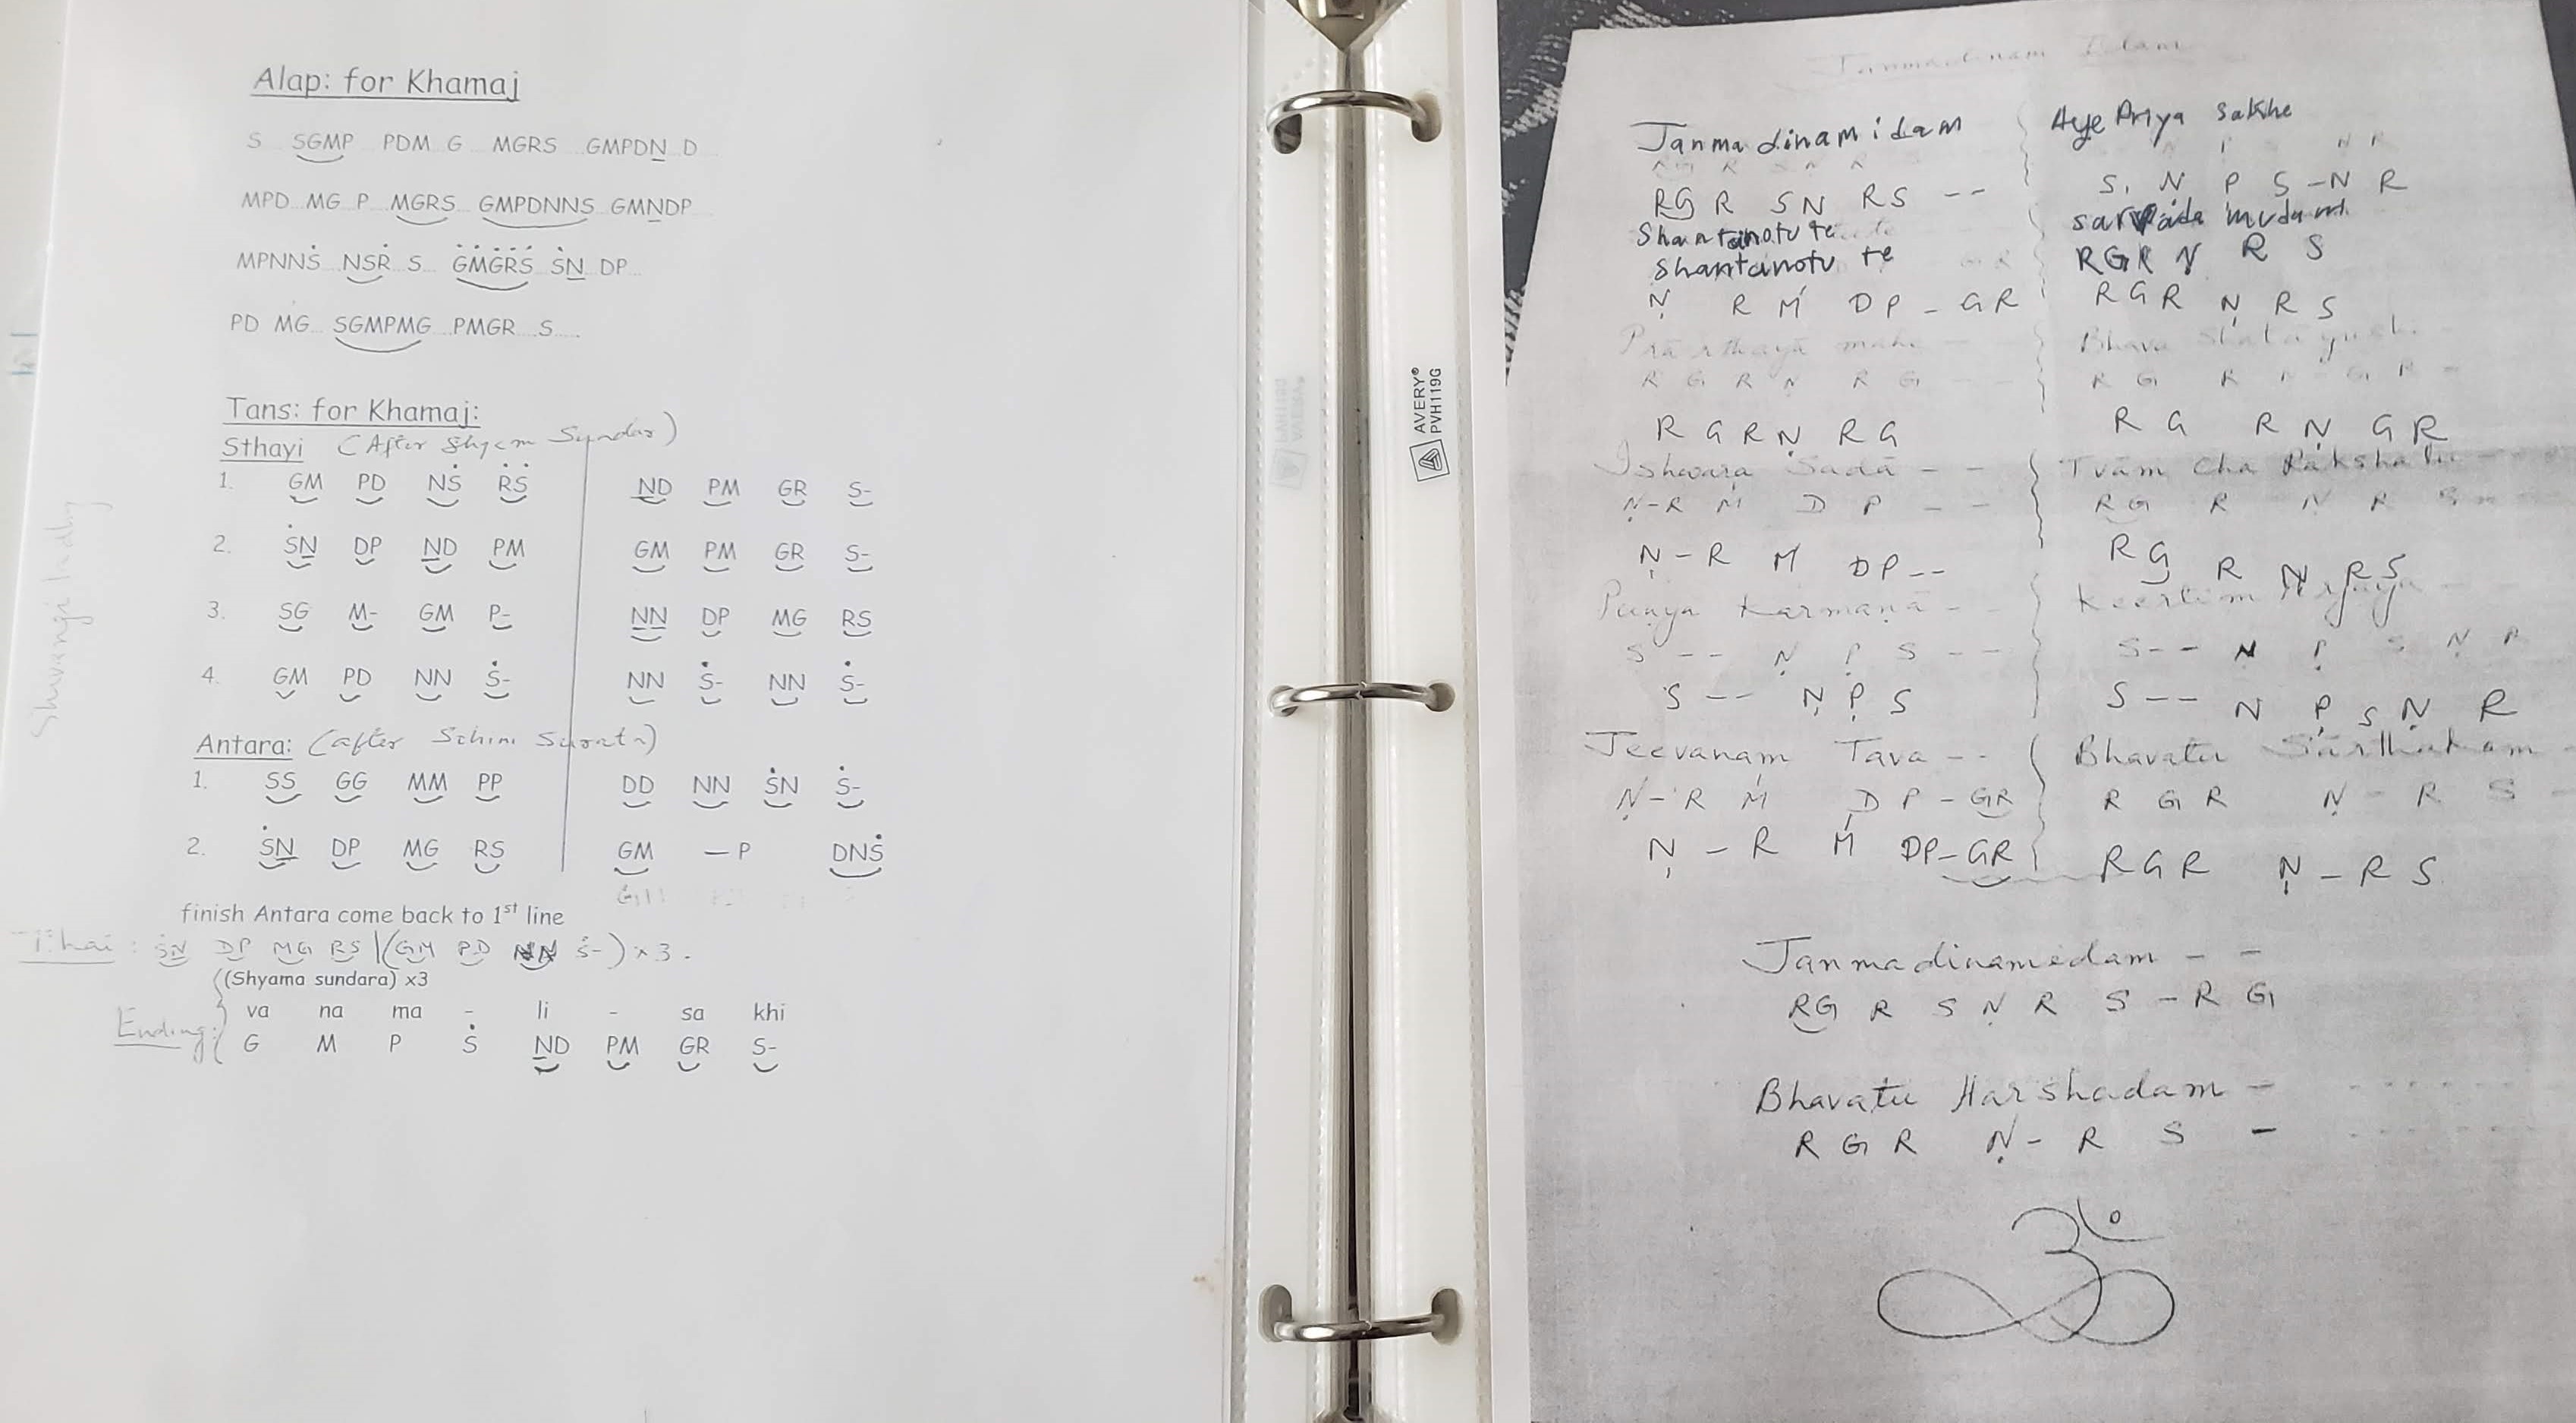 Alap: for Khamaj
S SGMP PDM G MGRS GMPDN̲ D
MPD MG P MGRS GMPDNNS GMN̲DP
MPNNṠ NSṘ S ĠṀĠṘṠ ṠN̲ DP
PD MG SGMPMG PMGR S
Tans: for Khamaj:
Sthayi (After Shyam Sundar)
1. GM PD NṠ ṘṠ N̲D PM GR S-
2. ṠN̲ DP N̲D PM GM PM GR S-
3. SG M- GM P- N̲N̲ DP MG RS
4. GM PD NN Ṡ- NN Ṡ- NN Ṡ-
Antara: (after Sohini Surata)
1. SS GG MM PP DD NN ṠN Ṡ-
2. ṠN̲ DP MG RS GM – P DNṠ
finish Antara come back to 1st line
Tihai: ṠN̲ DP MG RS | (GM PD NN Ṡ-) x 3.
((Shyama sundara) x3
va na ma - li - sa khi
Ending: G M P Ṡ N̲D PM GR S-
AVERY®
PVH119G
Janmadinam Idam
Janmadinamidam
RG R SN RS --
Shantanotu te
Shantanotu te
Ṇ R Ḿ DP - GR
Prārthayā mahe - -
R G R N R G - -
R G R Ṇ R G
Ishwara Sadā - -
Ṇ-R M D P - -
Ṇ - R M DP--
Punya Karmanā - -
S -- N P S --
S -- Ṇ P̣ S
Jeevanam Tava --
Ṇ-R M D P - GR
Ṇ - R Ḿ DP-GR
Aye Priya Sakhe
S. N P S -N R
sarvada mudam
RGR N R S
RGR Ṇ R S
Bhava Shatayushi
R G R N G R -
R G R Ṇ G R
Tvām Cha Rakshatu
RG R N R S
RG R Ṇ RS
Keertim Arjaya
S-- N P S N R
S -- N P̣ S N R
Bhavatu Sārthakam
R G R N - R S -
R G R Ṇ - R S
Janmadinamedam - -
RG R S N R S - R G
Bhavatu Harshadam -
R G R Ṇ - R S -
ॐ